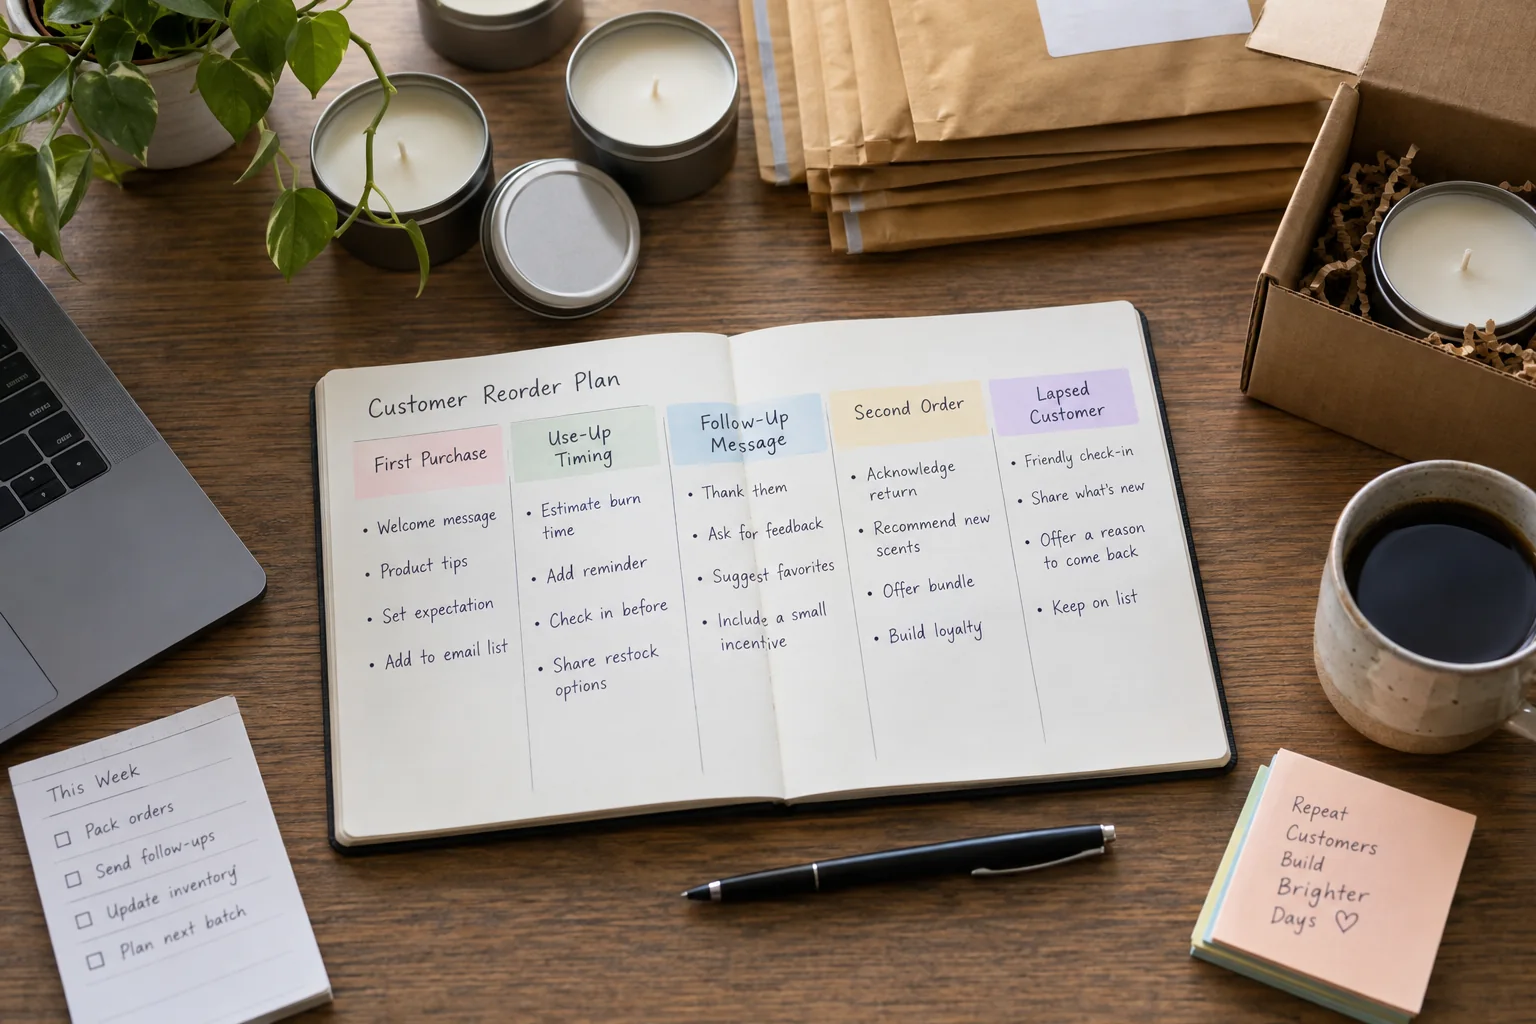 Customer Reorder Plan
First Purchase
• Welcome message
• Product tips
• Set expectation
• Add to email list
Use-Up
Timing
• Estimate burn
time
• Add reminder
• Check in before
• Share restock
options
Follow-Up
Message
• Thank them
• Ask for feedback
• Suggest favorites
• Include a small
incentive
Second Order
• Acknowledge
return
• Recommend new
scents
• Offer bundle
• Build loyalty
Lapsed
Customer
• Friendly check-in
• Share what's new
• Offer a reason
to come back
• Keep on list
This Week
Pack orders
Send follow-ups
Update inventory
Plan next batch
Repeat
Customers
Build
Brighter
Days ♡